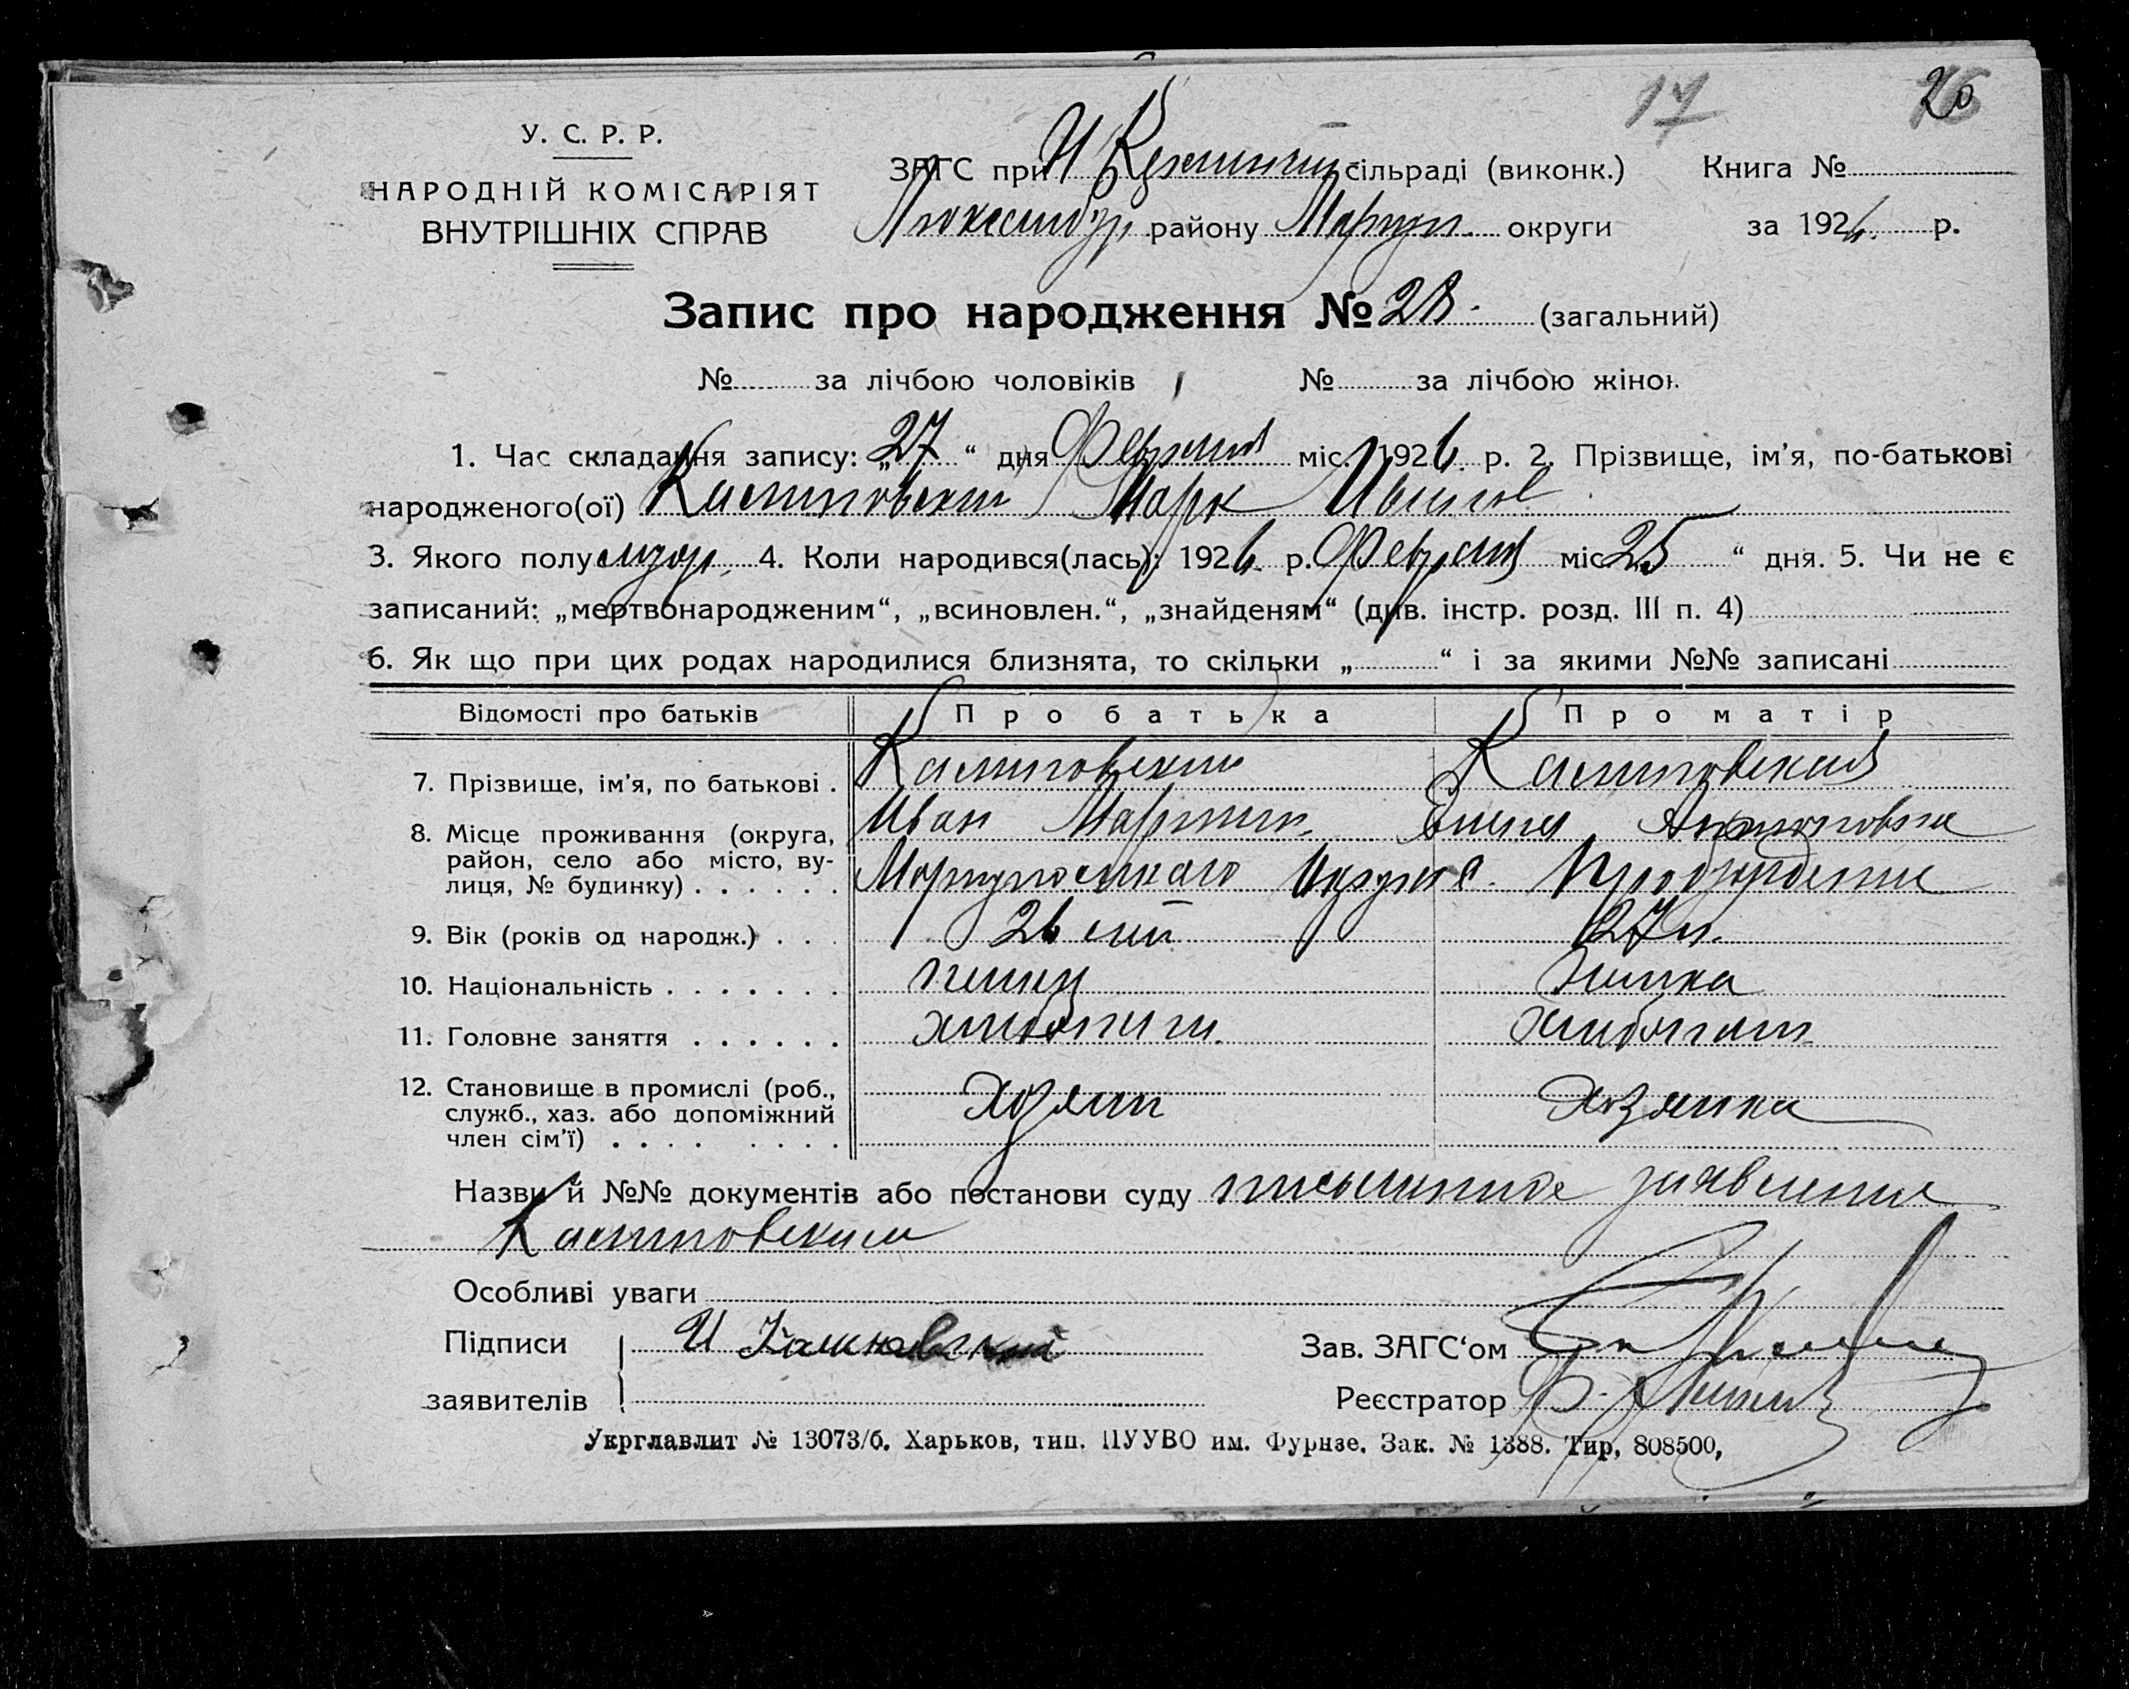 17 20
У. С. Р. Р.
НАРОДНІЙ КОМІСАРІЯТ
ВНУТРІШНІХ СПРАВ
ЗАГС при сільраді (виконк.) Книга №
району Мариуп. округи за 1926. р.
Запис про народження № 28. (загальний)
№ за лічбою чоловіків № за лічбою жінок
1. Час складання запису: „27“ дня Февраля міс. 1926. р. 2. Прізвище, ім’я, по-батькові
народженого(ої) Марк Иванов
3. Якого полу мужс. 4. Коли народився(лась): 1926. р. Февраля міс 25 “ дня. 5. Чи не є
записаний: „мертвонародженим“, „всиновлен.“, „знайденям“ (див. інстр. розд. III п. 4)
6. Як що при цих родах народилися близнята, то скільки „ “ і за якими №№ записані
Відомості про батьків Про батька Про матір
7. Прізвище, ім’я, по батькові .
8. Місце проживання (округа, Иван Мартин.
район, село або місто, ву-
лиця, № будинку) . . . . . . Мариупольского Округа
9. Вік (років од народж.) . . . 26 лет 27 л.
10. Національність . . . . . . . немец немка
11. Головне заняття . . . . . . хлебопаш. хлебопаш.
12. Становище в промислі (роб., хозяин хозяйка
служб., хаз. або допоміжний
член сім’ї) . . . . . . . .
Назви й №№ документів або постанови суду письменное заявление
Особливі уваги
Підписи И
Зав. ЗАГС‘ом
заявителів
Реєстратор
Укрглавлит № 13073/б. Харьков, тип. ПУУВО им. Фурнзе. Зак. № 1388. Тир, 808500,